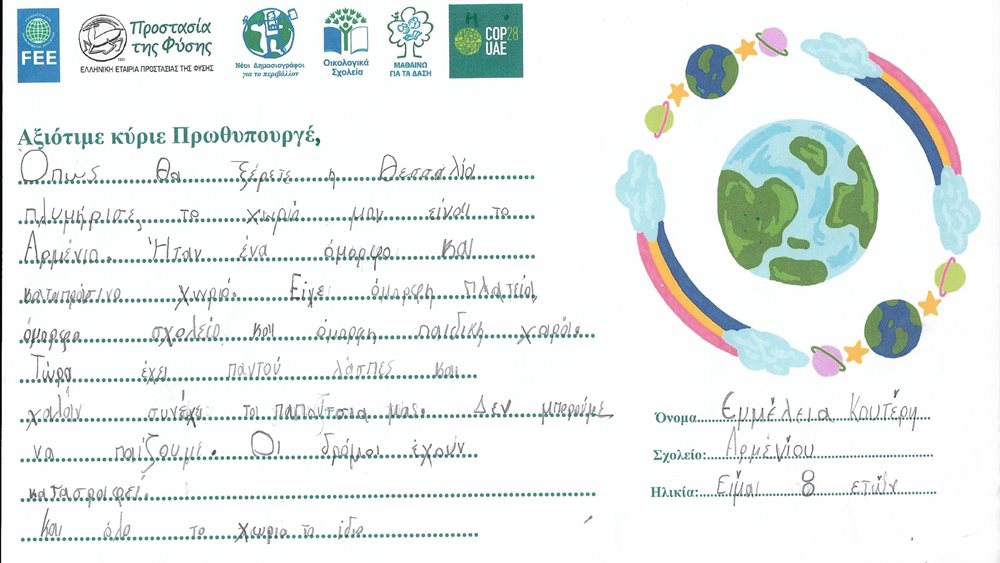 FEE
Προστασία
της Φύσης
ΕΛΛΗΝΙΚΗ ΕΤΑΙΡΙΑ ΠΡΟΣΤΑΣΙΑΣ ΤΗΣ ΦΥΣΗΣ
1951
Νέοι Δημοσιογράφοι
για το περιβάλλον
Οικολογικά
Σχολεία
ΜΑΘΑΙΝΩ
ΓΙΑ ΤΑ ΔΑΣΗ
COP28
UAE
Αξιότιμε κύριε Πρωθυπουργέ,
Όπως θα ξέρετε η Θεσσαλία
πλυμήρισε, το χωριό μου είναι το
Αρμένιο. Ήταν ένα όμορφο και
καταπράσινο χωριό. Είχε όμορφη πλατεία,
όμορφο σχολείο και όμορφη παιδικη χαρά.
Τώρα έχει παντού λάσπες και
χαλάν συνέχε τα παπούτσια μας. Δεν μπορούμε
να παίζουμε. Οι δρόμοι έχουν
καταστραφεί.
Και όλο το χωριο το ίδιο
Όνομα Εμμέλεια Κουτέρη
Σχολείο: Αρμένιου
Ηλικία: Είμαι 8 ετών